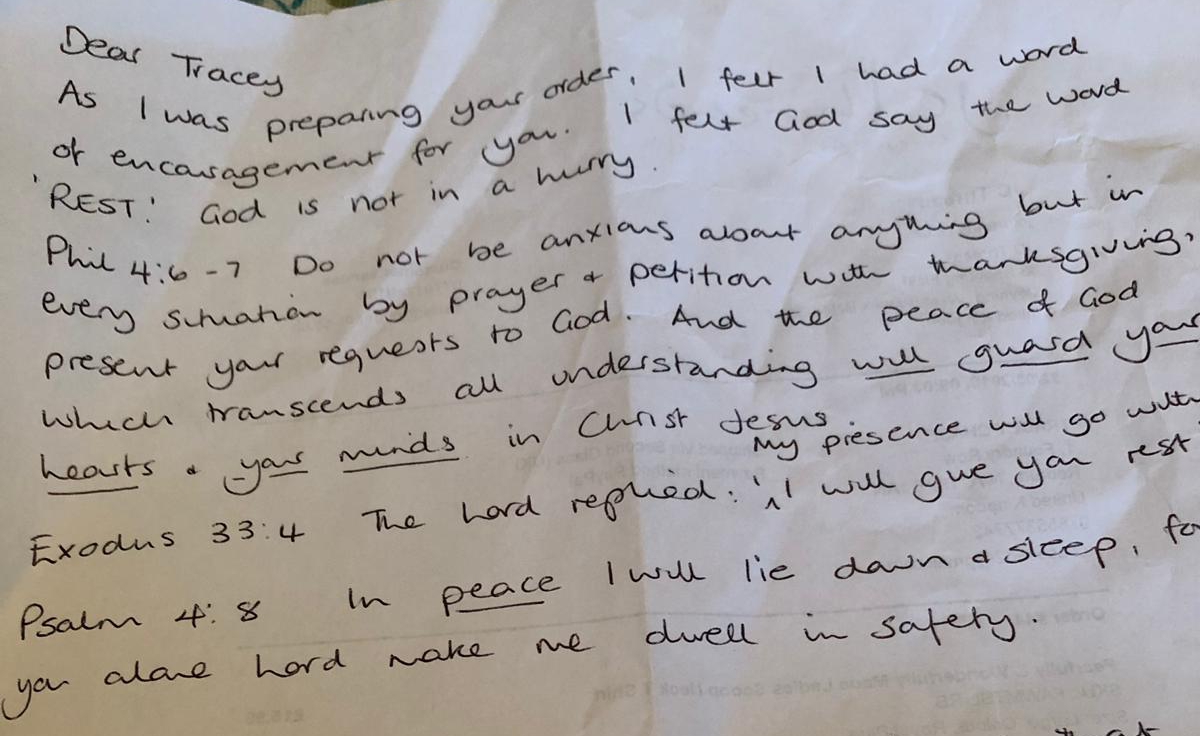 Dear Tracey
As I was preparing your order, I felt I had a word
of encouragement for you. I felt God say the word
'REST.' God is not in a hurry.
Phil 4:6-7 Do not be anxious about anything but in
every situation by prayer & petition with thanksgiving,
present your requests to God. And the peace of God
which transcends all understanding will guard your
hearts & your minds in Christ Jesus
My presence will go with
Exodus 33:4 The Lord replied: 'I will give you rest'
Psalm 4:8 In peace I will lie down & sleep, fo
you alone Lord make me dwell in safety.